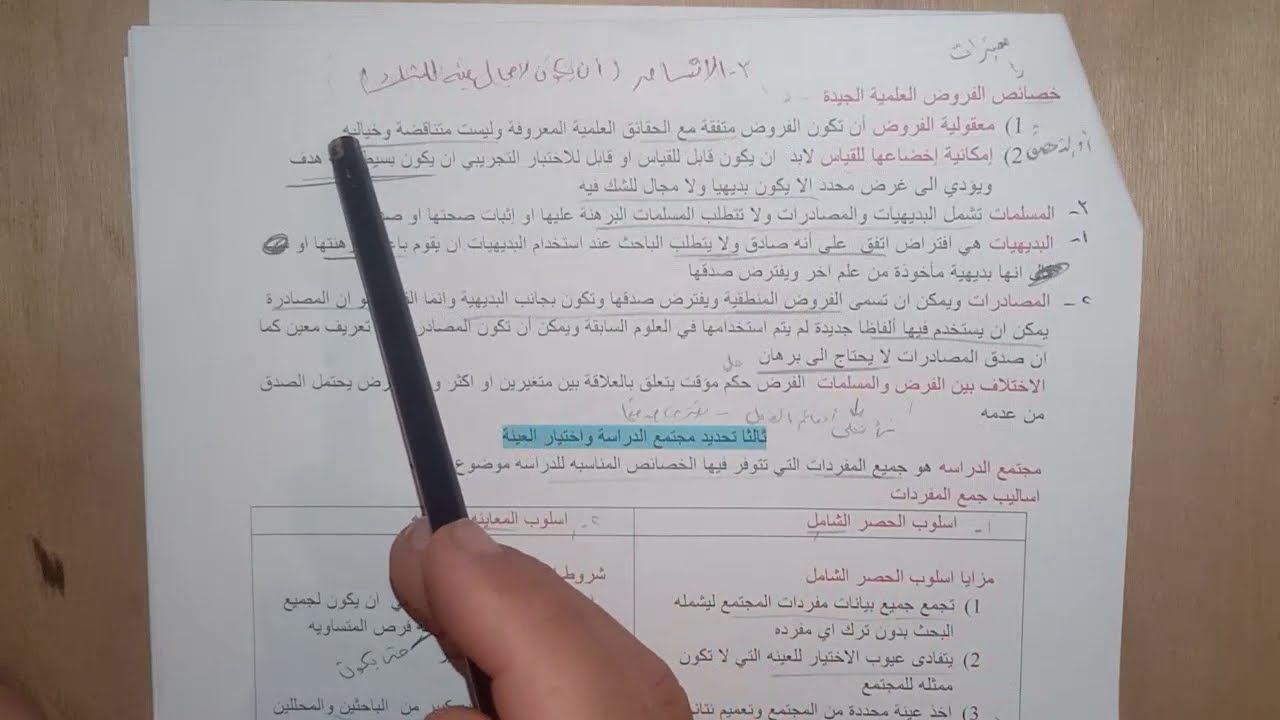 مميزات
خصائص الفروض العلمية الجيدة
1) معقولية الفروض أن تكون الفروض متفقة مع الحقائق العلمية المعروفة وليست متناقضة وخياليه
2) إمكانية إخضاعها للقياس لابد ان يكون قابل للقياس او قابل للاختبار التجريبي ان يكون بسيط هدف
ويؤدي الى غرض محدد الا يكون بديهيا ولا مجال للشك فيه
٣- المسلمات تشمل البديهيات والمصادرات ولا تتطلب المسلمات البرهنة عليها او إثبات صحتها او
١- البديهيات هي افتراض اتفق على أنه صادق ولا يتطلب الباحث عند استخدام البديهيات ان يقوم او
انها بديهية مأخوذة من علم اخر ويفترض صدقها
٢- المصادرات ويمكن ان تسمى الفروض المنطقية ويفترض صدقها وتكون بجانب البديهية وانما ان المصادرة
يمكن ان يستخدم فيها ألفاظا جديدة لم يتم استخدامها في العلوم السابقة ويمكن أن تكون تعريف معين كما
ان صدق المصادرات لا يحتاج الى برهان
الاختلاف بين الفرض والمسلمات الفرض حكم مؤقت يتعلق بالعلاقة بين متغيرين او اكثر يحتمل الصدق
من عدمه
ثالثا تحديد مجتمع الدراسة واختيار العينة
مجتمع الدراسه هو جميع المفردات التي تتوفر فيها الخصائص المناسبه للدراسه موضوع
اساليب جمع المفردات
١- اسلوب الحصر الشامل
٢- اسلوب المعاينه
مزايا اسلوب الحصر الشامل
1) تجمع جميع بيانات مفردات المجتمع ليشمله
البحث بدون ترك اي مفرده
2) يتفادى عيوب الاختيار للعينه التي لا تكون
ممثله للمجتمع
3) اخذ عينة محددة من المجتمع وتعميم
شروط
ان يكون لجميع
فرص المتساويه
حتى يكون
من الباحثين والمحللين